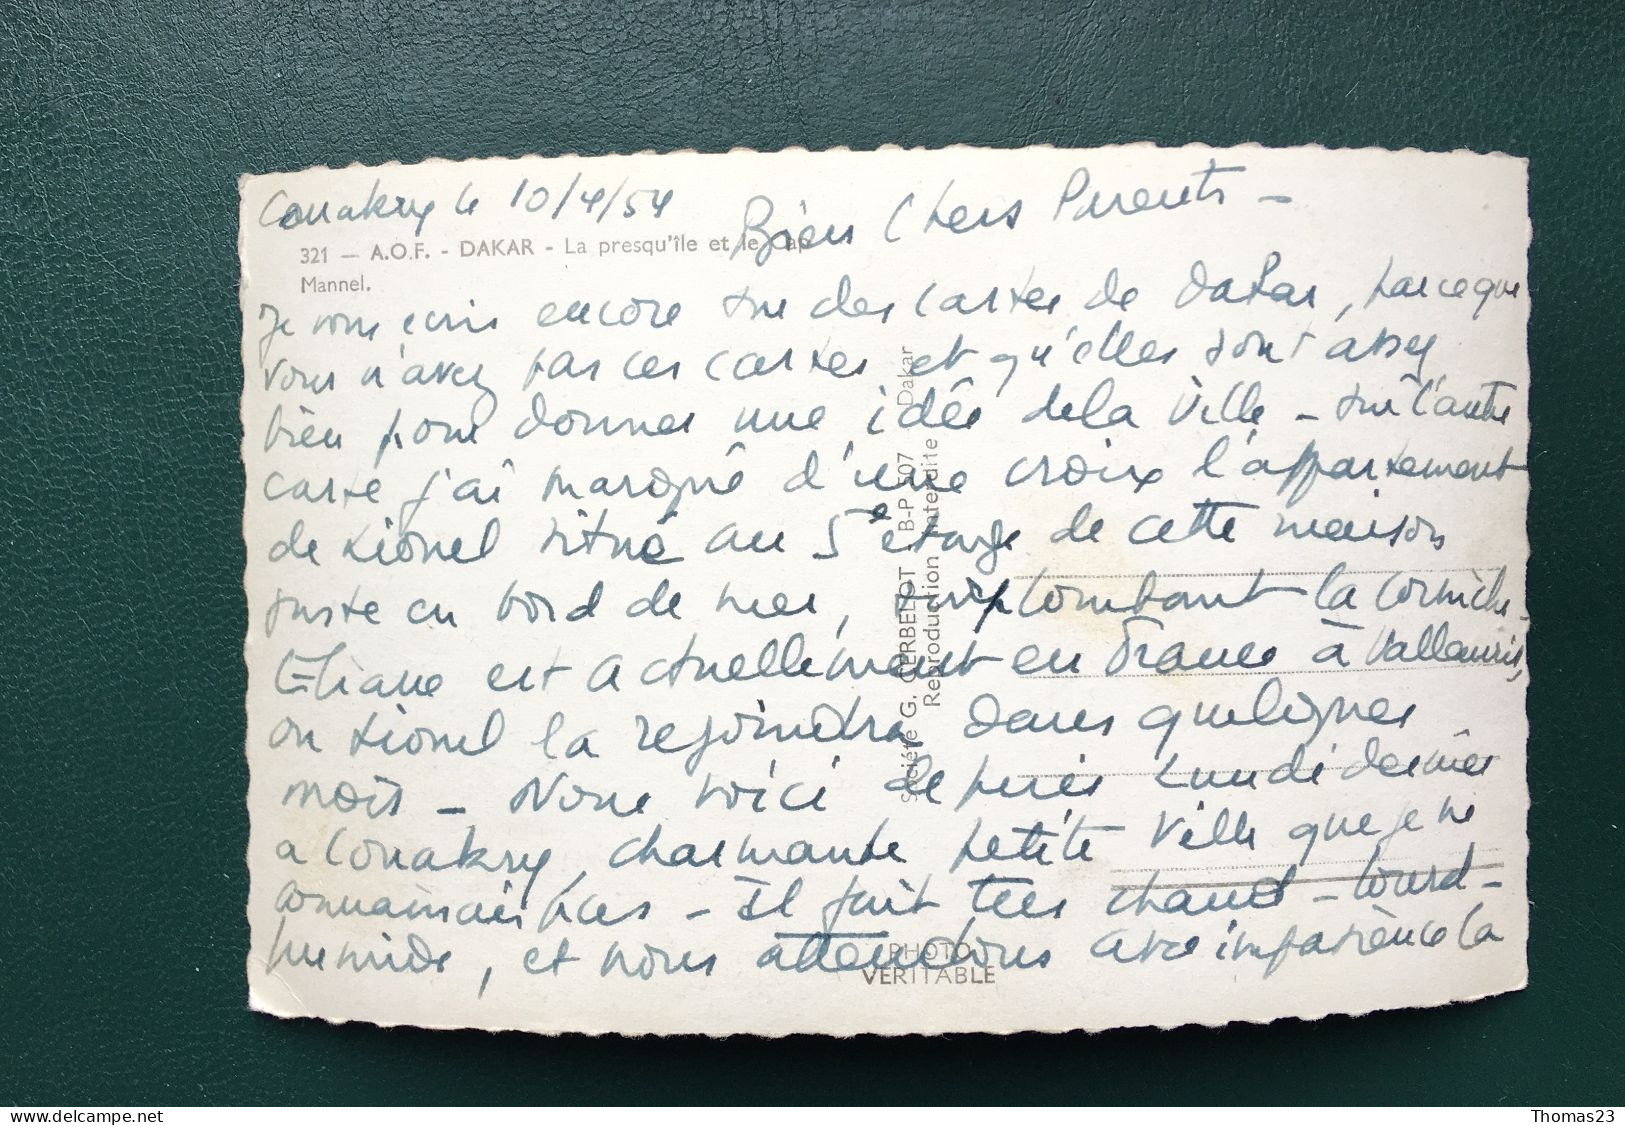 Conakry le 10/4/54
Bien Chers Parents -
321 — A.O.F. - DAKAR - La presqu'île et le Cap
Mannel.
Je vous écris encore sur des cartes de Dakar, parce que
vous n'avez pas ces cartes et qu'elles sont assez
bien pour donner une idée de la ville - sur l'autre
carte j'ai marqué d'une croix l'appartement
de Lionel situé au 5e étage de cette maison
juste en bord de mer, surplombant la Corniche.
Eliane est actuellement en France à Vallauris,
où Lionel la rejoindra dans quelques
mois - Nous voici depuis Lundi dernier
a Conakry, charmante petite ville que je ne
connaissais pas - Il fait très chaud - lourd -
humide, et nous attendons avec impatience la
Société G. GERBELOT - B-P 507 Dakar
Reproduction Interdite
PHOTO
VERITABLE
www.delcampe.net
Thomas23